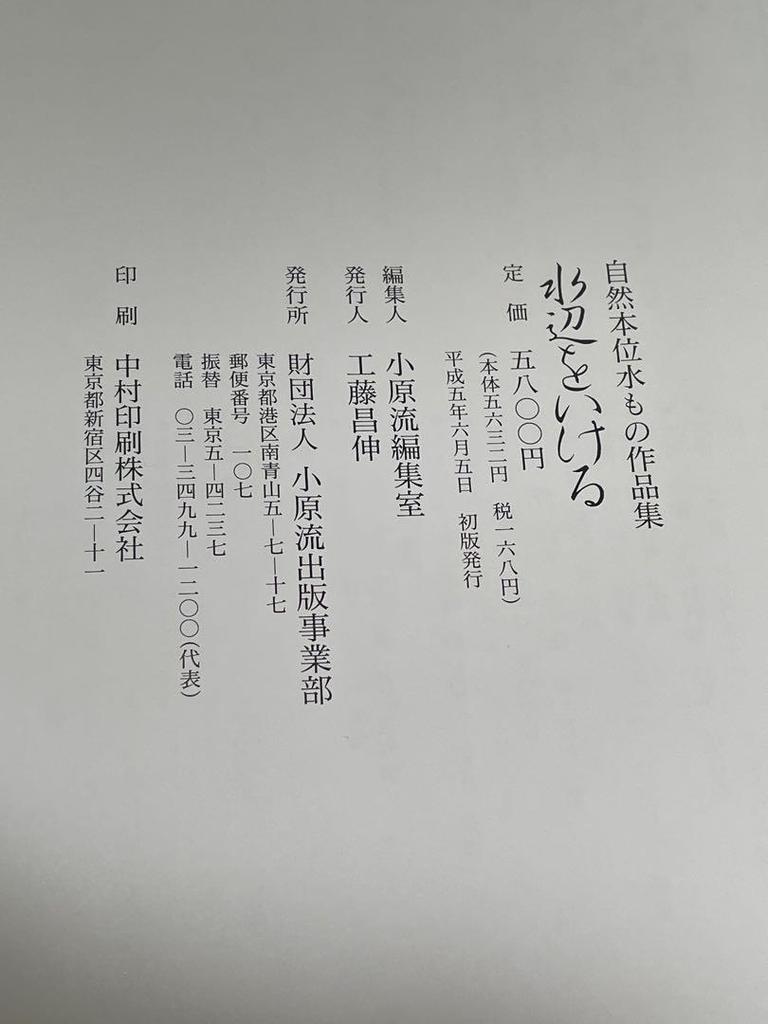 自然本位水もの作品集
水辺をいける
定価 五八〇〇円
（本体五六三二円 税一六八円）
平成五年六月五日 初版発行
編集人 小原流編集室
発行人 工藤昌伸
発行所 財団法人 小原流出版事業部
東京都港区南青山五―七―十七
郵便番号 一〇七
振替 東京五―四二三七
電話 〇三―三四九九―一二〇〇（代表）
印刷 中村印刷株式会社
東京都新宿区四谷二―十一